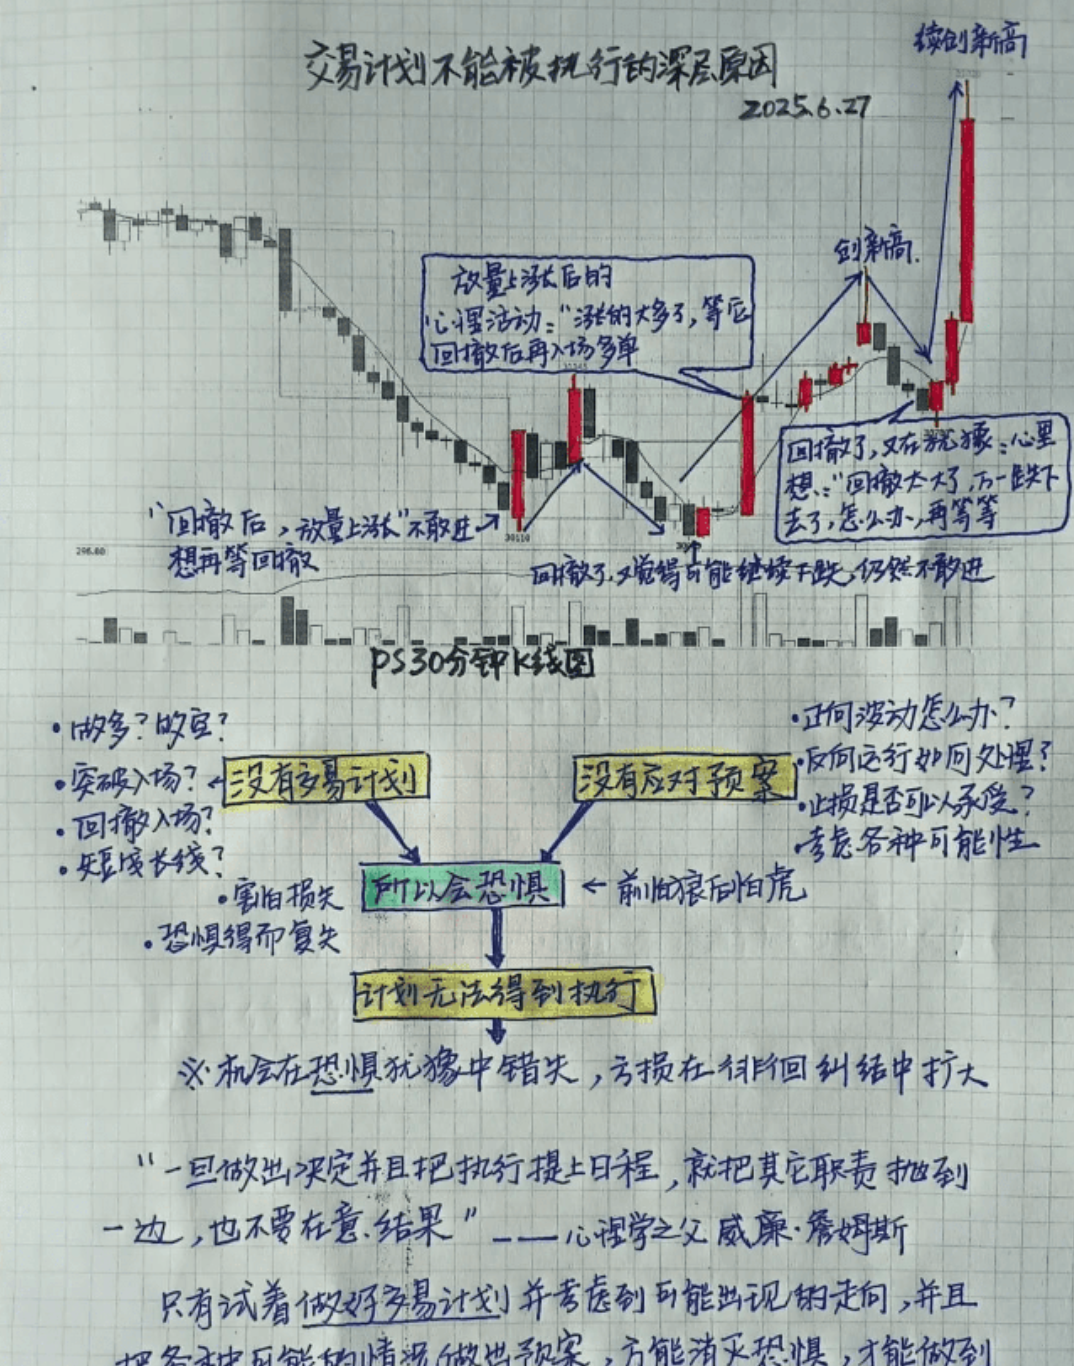 续创新高
交易计划不能被执行的深层原因
2025.6.27
创新高.
放量上涨后的
心理活动:"涨的太多了,等它
回撤后再入场多单
回撤了,又在犹豫:心里
想:"回撤太大了,万一跌下
去了,怎么办,再等等
"回撤后,放量上涨"不敢进
想再等回撤
30110
296.60
回撤了,又觉得可能继续下跌,仍然不敢进
PS30分钟K线图
·做多?做空?
·突破入场?
·回撤入场?
·短or长线?
没有交易计划
没有应对预案
·正向波动怎么办?
·反向运行如何处理?
·止损是否可以承受?
·考虑各种可能性
·害怕损失
·恐惧得而复失
所以会恐惧
前怕狼后怕虎
计划无法得到执行
※机会在恐惧犹豫中错失,亏损在徘徊纠结中扩大
"一旦做出决定并且把执行提上日程,就把其它职责抛到
一边,也不要在意结果"——心理学之父威廉·詹姆斯
只有试着做好交易计划并考虑到可能出现的走向,并且
把各种可能的情况做出预案,方能消灭恐惧,才能做到